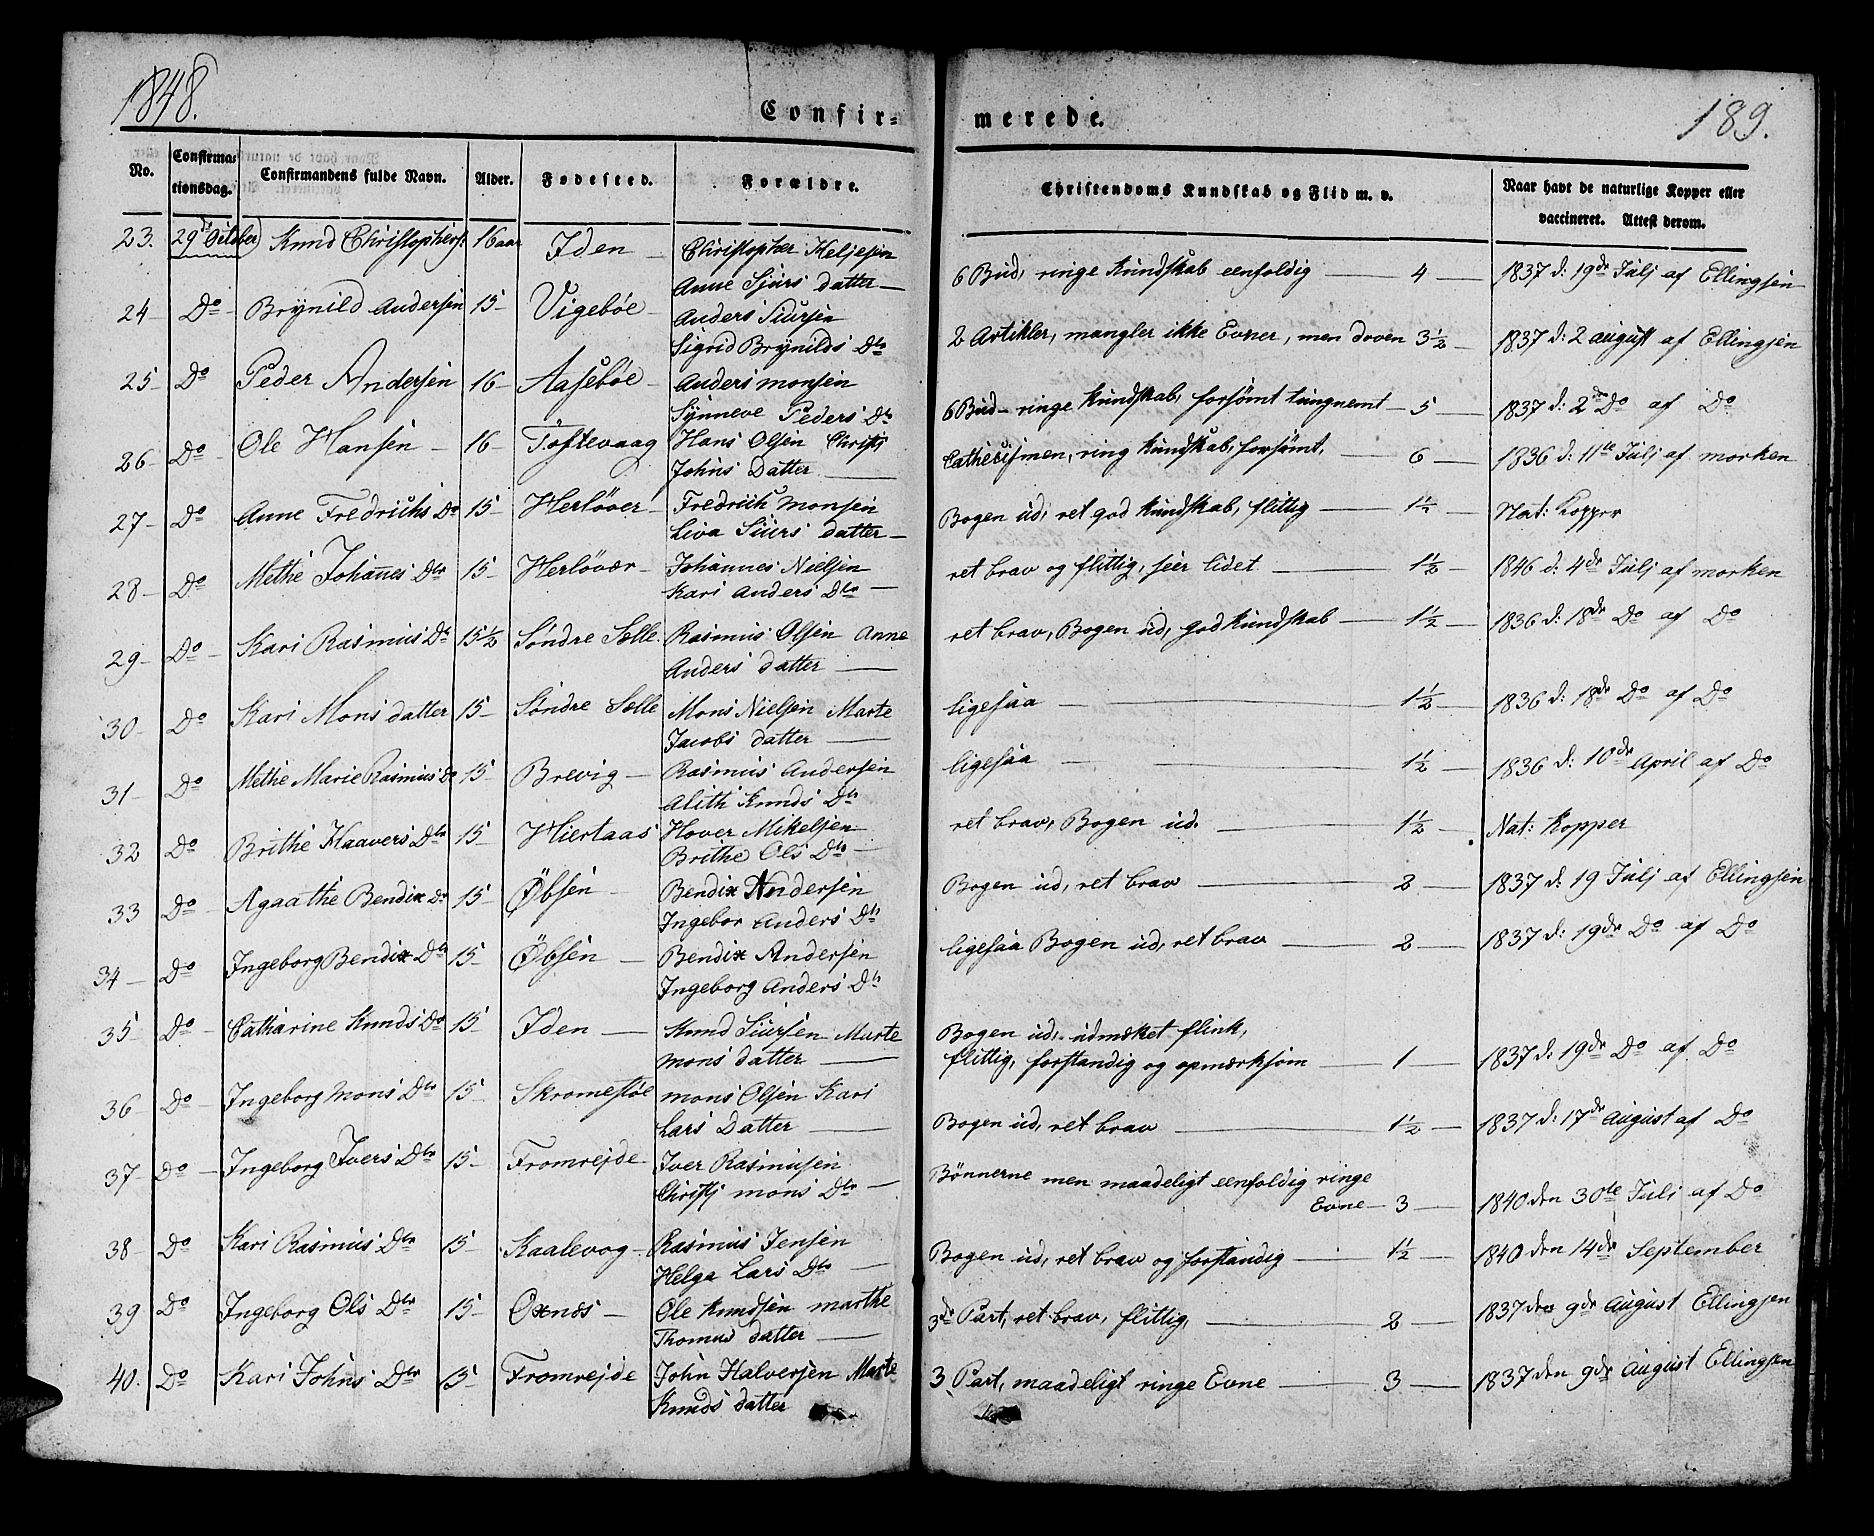 1848.
Confir-
merede.
189.
No. Confirma-tionsdag. Confirmandens fulde Navn. Alder. Fødested. Forældre. Christendoms Kundskab og Flid m. v. Naar havt de naturlige Kopper eller vaccineret. Attest derom.
23. 29de October Knud Christophers. 16 aar Iden Christopher Heljesen
Anne Sjurs datter 6 Bud, ringe Kundskab eenfoldig 4 1837 d: 19de Julj af Ellingsen
24 Do Brynild Andersen 15 Vigebøe Anders Siursen
Sigrid Brynilds Dtr 2 Artikler, mangler ikke Evner, men doven 3½ 1837 d: 2 august af Ellingsen
25 Do Peder Andersen 16 Aasebøe Anders Monsen
Synneve Peders Dtr 6 Bud ringe Kundskab, forsömt tungnemt 5 1837 d: 2de Do af Do
26 Do Ole Hansen 16 Toftevaag Hans Olsen Christj
Johns Datter Cathecismen, ring Kundskab, forsömt, 6 1836 d: 11te Julj af morken
27 Do Anne Fredrichs Do 15 Herlöver Fredrich Monsen
Liva Siurs datter Bogen ud, ret god Kundskab, flittig 1½ Nat: Kopper
28 Do Methe Johanes Dtr 15 Herlövær Johannes Nielsen
Kari Anders Dtr ret brav og flittig, seer lidet 1½ 1846 d: 4de Julj af morken
29 Do Kari Rasmus Dtr 15½ Söndre Sælle Rasmus Olsen Anne
Anders datter ret brav, Bogen ud, god Kundskab 1½ 1836 d: 18de Do af Do
30 Do Kari Mons datter 15 Söndre Sælle Mons Nielsen Marte
Jacobs datter ligesaa 1½ 1836 d: 18de Do af Do
31 Do Methe Marie Rasmus Do 15 Brevig Rasmus Andersen
Alith Knuds Dtr ligesaa 1½ 1836 d: 10de April af Do
32 Do Brithe Haavers Dtr 15 Hiertaas Hover Mikelsen
Brithe Ols Dtr ret brav, Bogen ud. 1½ Nat: Kopper
33 Do Agaathe Bendix Do 15 Øbsen Bendix Andersen
Ingebor Anders Dtr Bogen ud, ret brav 2 1837 d: 19 Julj af Ellingsen
34 Do Ingeborg Bendix Dtr 15 Øbsen Bendix Andersen
Ingeborg Anders Dtr ligesaa Bogen ud, ret brav 2 1837 d: 19de Do af Do
35 Do Catharine Knuds Do 15 Iden Knud Siursen Marte
mons datter Bogen ud, udmæket flink,
flittig, forstandig og opmærksom 1 1837 d: 19de Do af Do
36 Do Ingeborg Mons Dtr 15 Skromestöe mons Olsen Kari
Lars Datter Bogen ud, ret brav 1½ 1837 d: 17de august af Do
37 Do Ingeborg Ivers Dtr 15 Fromrejde Iver Rasmusen
Christj mons Dtr Bønnerne men maadeligt eenfoldig ringe
Evne 3 1840 den 30te Juli af Do
38 Do Kari Rasmus Dtr 15 Kaalevog Rasmus Jensen
Helga Lars Dtr Bogen ud, ret brav og forstandig 1½ 1840 den 14de September
39 Do Ingeborg Ols Dtr 15 Oxnæs Ole Knudsen marthe
Thomas datter 3de Part, ret brav, flittig, 2 1837 den 9de August Ellingsen
40. Do Kari Johns Dtr 15 Fromrejde John Halversen Marte
Knuds datter 3 Part, maadeligt ringe Evne 3 1837 den 9de august Ellingsen